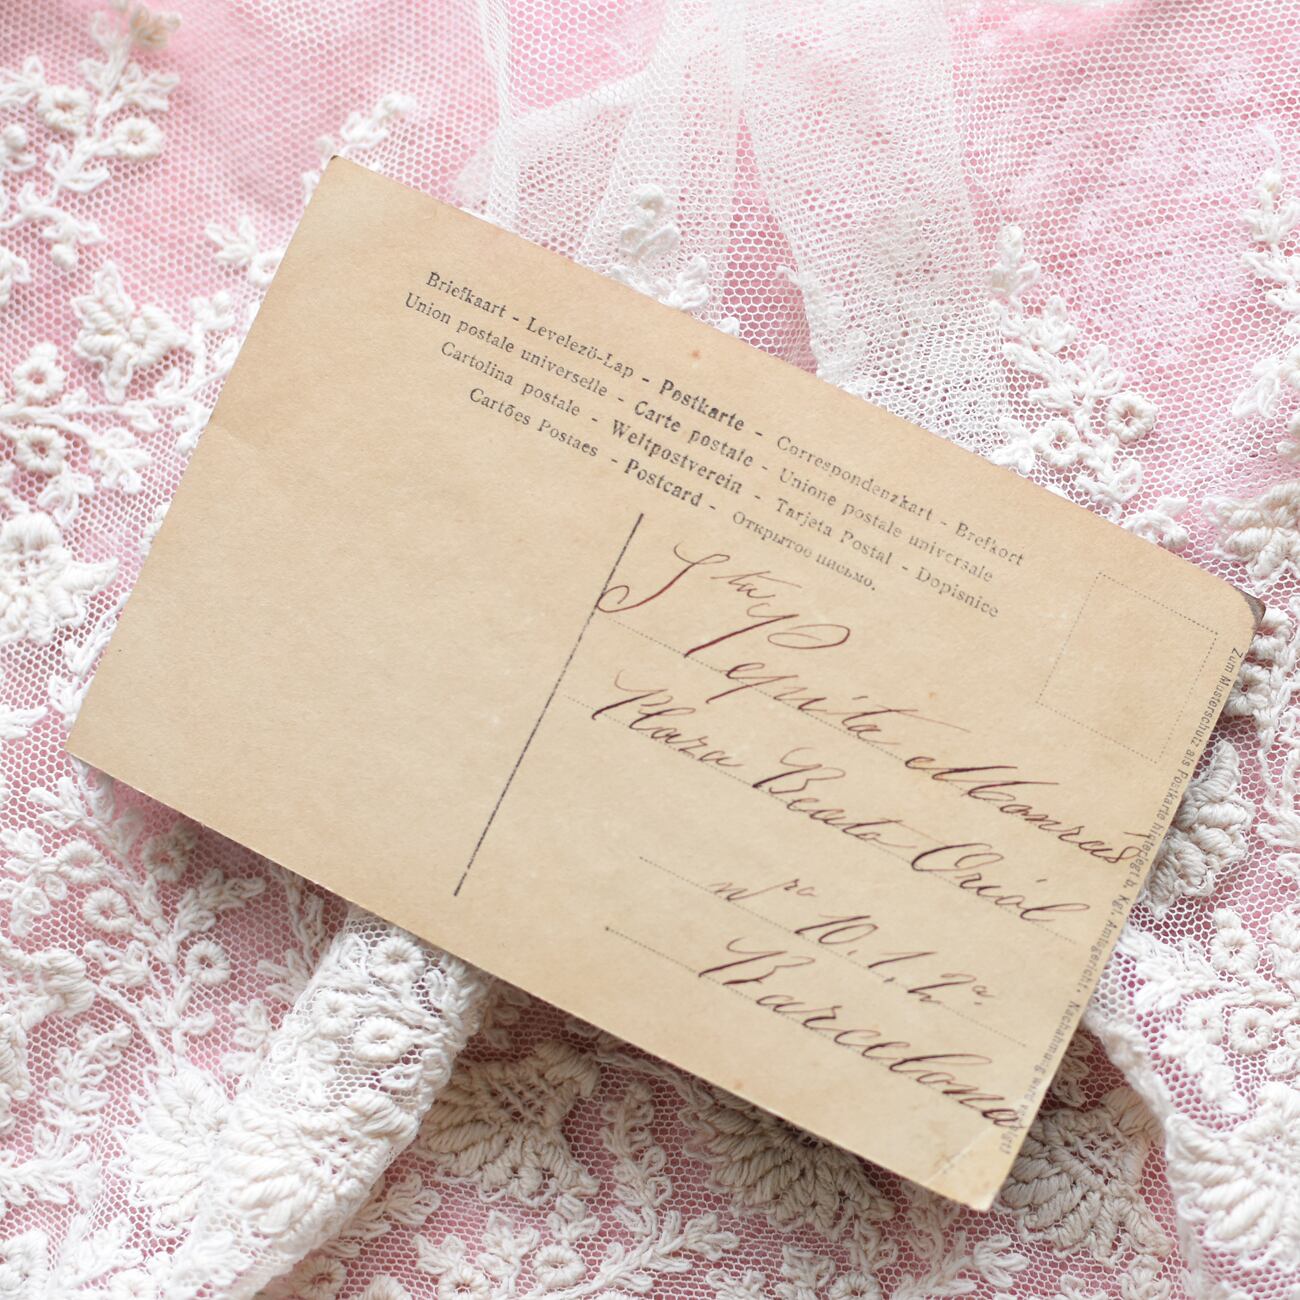 Briefkaart - Levelező-Lap - Postkarte - Correspondenzkart - Brefkort
Union postale universelle - Carte postale - Unione postale universale
Cartolina postale - Weltpostverein - Tarjeta Postal - Dopisnice
Cartões Postaes - Postcard - Открытое письмо.
Sta Pepita Monrás
Plaza Beato Oriól
nro 10. 1. 2a
Barcelona
Zum Musterschutz als Postkarte hinterlegt b. Kgl. Amtsgericht. Nachahmung wird verfolgt